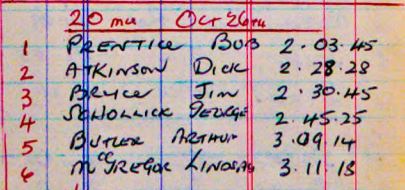 20 mu Oct 26th
1 Prentice Bob 2.03.45
2 Atkinson Dick 2.28.28
3 Bryce Jim 2.30.45
4 Schollick George 2.45.25
5 Butler Arthur 3.09.14
6 McGregor Lindsay 3.11.13